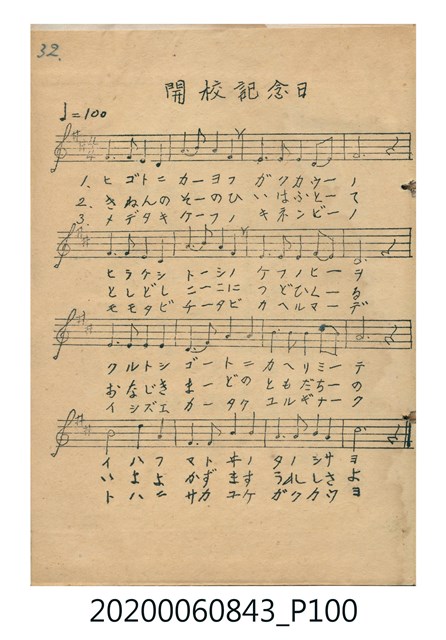 32.
開校記念日
♩=100
1. ヒ ゴトニ カーヨフ ガクカウーノ
2. きねんの そーのひ いはふとーて
3. メデタキ ケーフノ キネンビーノ
ヒラケシ トーシノ ケフノヒーヲ
としどし にーに つどひくーる
モモタビ チータビ カヘルマーデ
クルトシ ゴートニ カヘリミーテ
おなじき まーどの ともだちーの
イシズエ カータク ユルギナーク
イハフ マトヰノ タノシサヨ
いよよ かずます うれしさよ
トハニ サカユケ ガクカウヨ
20200060843_P100